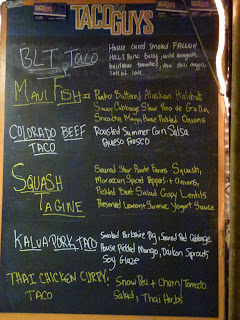 TACO GUYS
BLT TACO
House Cured Smoked FALLEN
HILLS Pork Belly, wild arugula,
heirloom tomatoes, thai chili mayo,
lots of love
MAUI FISH
Panko Buttered Alaskan Halibut,
Cabbage Slaw Pico de Gallo,
Sriracha Mayo, House Pickled Onions
COLORADO BEEF
TACO
Roasted Summer Corn Salsa
Queso Fresco
SQUASH
TAGINE
Seared Star Route Farms Squash,
Moroccan Spiced Peppers + Onions,
Pickled Beet Salad Crispy Lentils
Preserved Lemon + Sumac Yogurt Sauce
KALUA PORK TACO
Smoked Berkshire Pig, Seared Red Cabbage
House Pickled Mango, Daikon Sprouts,
Soy Glaze
THAI CHICKEN CURRY
TACO
Snow Pea + Cherry Tomato
Salad, Thai Herbs